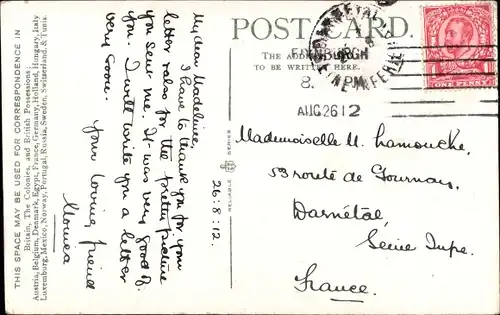 THIS SPACE MAY BE USED FOR CORRESPONDENCE IN
Britain, The Colonies, and British Possessions
Austria, Belgium, Denmark, Egypt, France, Germany, Holland, Hungary, Italy
Luxemburg, Mexico, Norway, Portugal, Russia, Sweden, Switzerland, & Tunis.
My dear Madeleine,
I have to thank you for your
letter & also for the pretty picture
you sent me. It was very good of
you. I will write you a letter
very soon.
Your loving friend
26:8:12.
RELIABLE
SERIES
POST CARD.
THE ADDRESS
TO BE WRITTEN HERE.
DARNETAL
EDINBURGH
8. PM
AUG 26 12
ONE PENNY
Mademoiselle M. Lamouche,
59 route de Gournay,
Darnétal,
Seine Infre.
France.